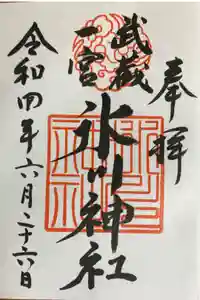 奉拝
武蔵
一宮
氷川神社
令和四年六月二十六日